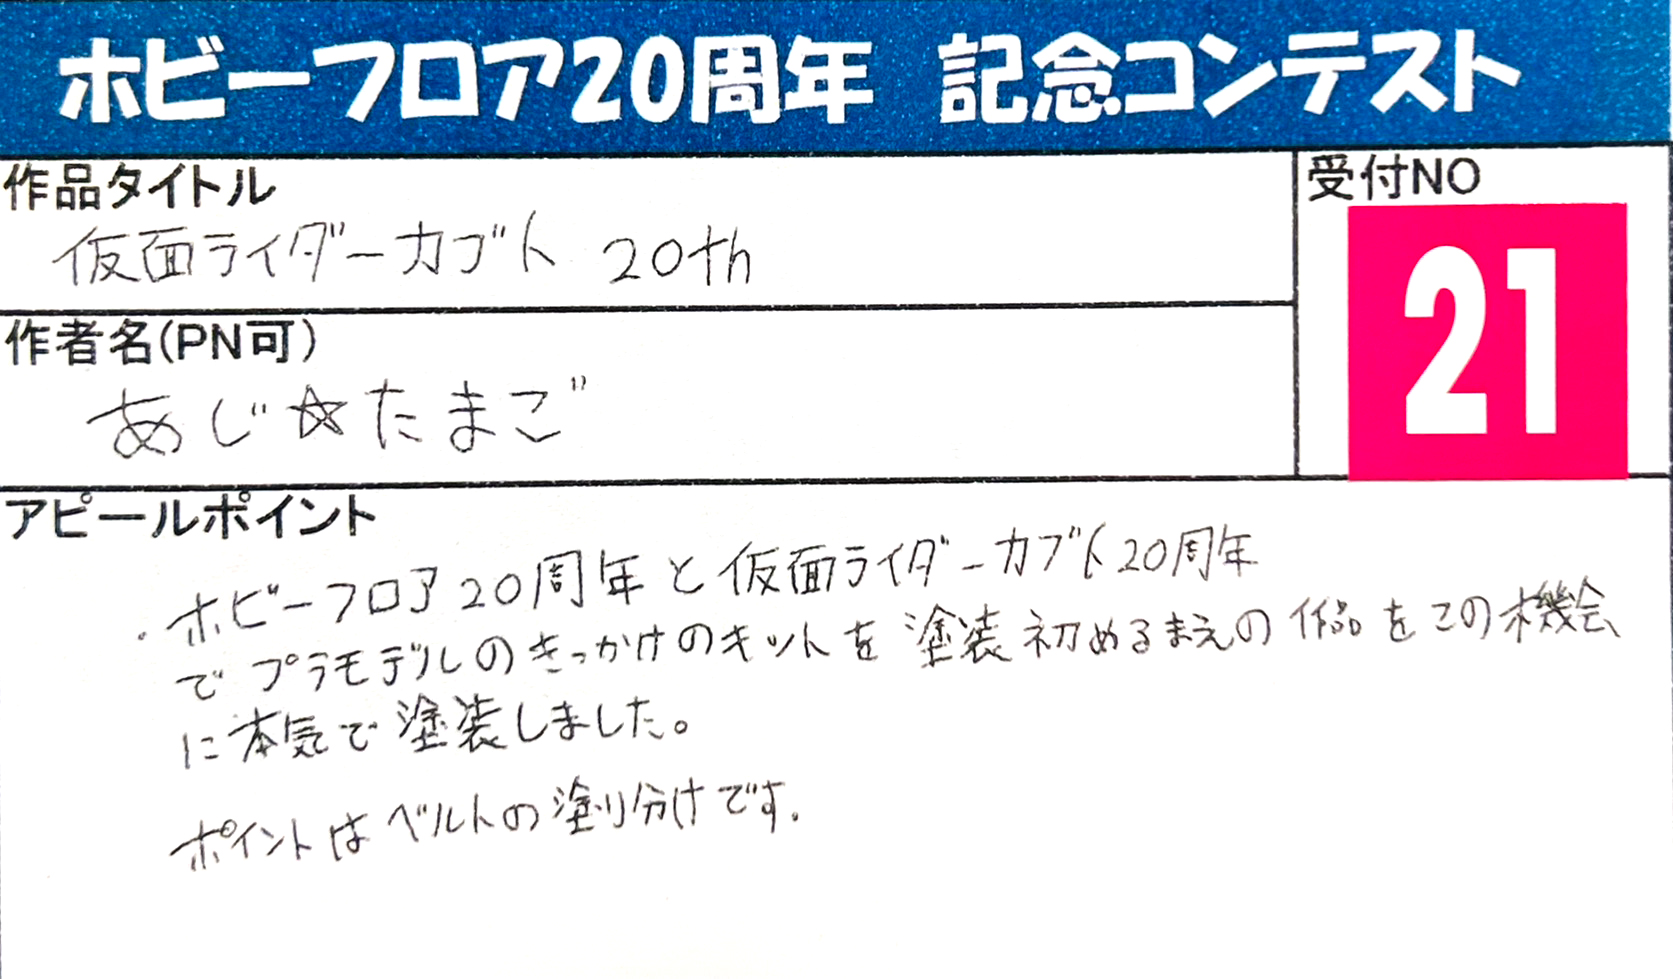 ホビーフロア20周年 記念コンテスト
作品タイトル
仮面ライダーカブト 20th
受付NO
21
作者名(PN可)
あじ☆たまご
アピールポイント
・ホビーフロア20周年と仮面ライダーカブト20周年
でプラモデルのきっかけのキットを塗装初めるまえの作品をこの機会
に本気で塗装しました。
ポイントはベルトの塗り分けです.